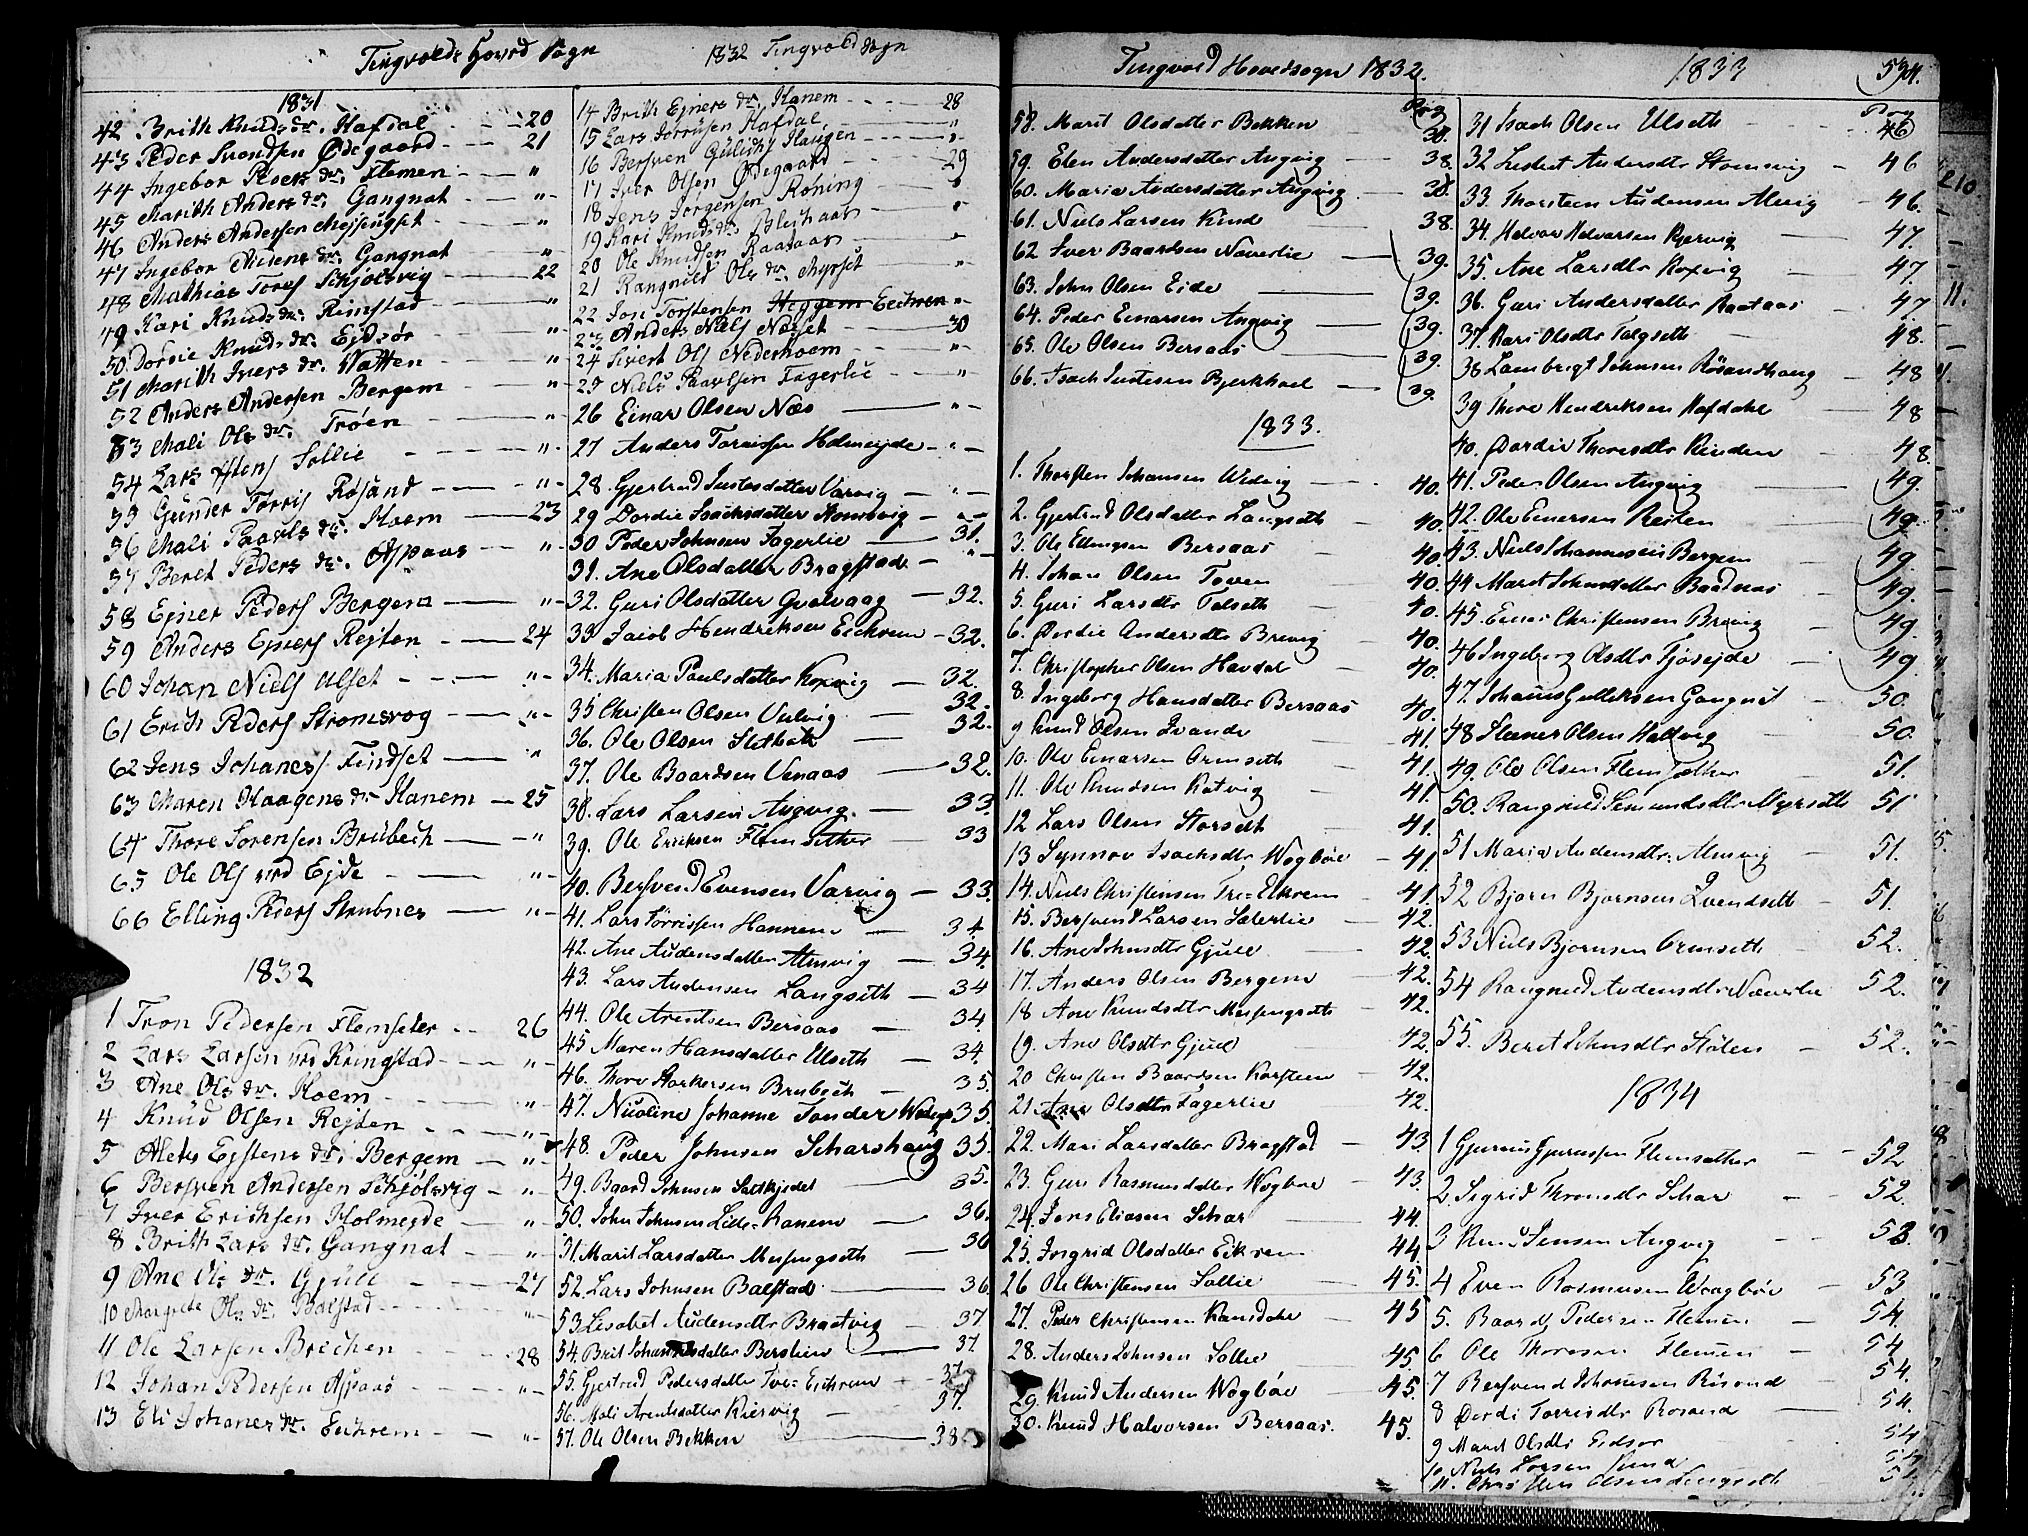 Tingvolds Hoved Sogn
1832 Tingvold Sogn
1831
42 Brith Knuds dr. Hafdal - - - 20
43 Peder Svendsen Ødegaard - - - 21
44 Ingebor Peders dr. Flemen - - - "
45 Marith Anders dr. Gangnat - - "
46 Anders Andersen Mejsingset - - "
47 Ingebor Audens dr. Gangnat - - "
48 Mathias Tores Schjølsvig - - 22
49 Kari Knuds dr. Ringstad - - "
50 Dordie Knuds dr. Ejdsør - - "
51 Marith Ivers dr. Vatten - - "
52 Anders Andersen Bergem - - "
53 Mali Ols dr. Trøen - - "
54 Lars Sollie - - "
55 Gunder Torris Røsand - - "
56 Mali Paavls dr. Hoem - - 23
57 Beret Peders dr. Aspaas - - "
58 Ejner Peders Bergem - - "
59 Anders Ejners Rejten - - 24
60 Johan Niels Ulset - - "
61 Erich Peders Stromsvog - - "
62 Jens Johanes Findset - - "
63 Maren Haagens dr. Hanem - 25
64 Thore Sorensen Brubech - "
65 Ole Ols ved Ejde - - "
66 Elling Peders Strubnes - - "
1832
1 Tron Pedersen Flemseter - - 26
2 Lars Larsen Kringstad - - "
3 Ane Ols dr. Hoem - - "
4 Knud Olsen Rejten - - "
5 Alets Ejstens dr. Bergem - "
6 Bersven Andersen Schjølsvig - "
7 Iver Erichsen Holmejde - - "
8 Brith Lars dr. Gangnat - - "
9 Ane Ols dr. Gjull - - 27
10 Margrete Ols dr. Balstad - - "
11 Ole Larsen Brechen - - 28
12 Johan Pedersen Aspaas - - "
13 Eli Johanes dr. Eichrem - - "
14 Brith Ejners dr. Hanem - - 28
15 Lars Torrisen Hafdal - - "
16 Bersven Gulichs Haugen - - "
17 Iver Olsen Ødegaard - - 29
18 Jens Jørgensen Røning - - "
19 Kari Knuds dr. Bleikaas - - "
20 Ole Knudsen Raataas - - "
21 Rangnild Ols dr. Myrset - - "
22 Jon Torstensen Heggem Eichrem - "
23 Anders Niels Næset - - 30
24 Sivert Ols Nederhoem - - "
25 Niels Paavlsen Fagerlie - - "
26 Einar Olsen Næs - - "
27 Anders Torrissen Holmeyde - - "
28 Gjertrud Justesdatter Varvig - - "
29 Dordie Isachsdatter Stomsvig - - "
30 Peder Johnsen Fagerlie - 31.
31. Ane Olsdatter Bragstad - "
32. Guri Olsdatter Qvelvaag - 32.
33 Jacob Hendriksen Eichrem - 32.
34. Maria Paulsdatter Koxvig - 32.
35 Christen Olsen Vulvig - 32.
36. Ole Olsen Sletbak - 32.
37. Ole Baardsen Venaas - 32.
38. Lars Larsen Angvig - 33
39. Ole Eriksen Flemsether - 33
40. Bersvend Evensen Varvig - 33.
41. Lars Torrissen Hannem - 34
42. Ane Audensdatter Almvig - 34.
43. Lars Audensen Langseth - 34
44. Ole Arentsen Bersaas - 34
45 Maren Hansdatter Ulseth - 34.
46. Thore Storkersen Brubech - 35
47. Nicoline Johanne Tander - 35.
48. Peder Johnsen Scharshaug 35.
49. Baard Johnsen Saltkjelet - 35.
50. John Johnsen Lille-Hanem - 36.
51 Marit Larsdatter Mesingseth - 36
52. Lars Johnsen Balstad - 36
53 Lisabet Audensdtr Braatvig - 37
54. Brit Johannesdatter Berslien - 37
55. Gjertrud Pedersdatter Tre-Eichrem - 37
56. Mali Arentsdatter Kiersvig - 37.
57. Ole Olsen Bekken - 38
Tingvold Hovedsogn 1832.
1833
Pag
58. Marit Olsdatter Bekken 38.
59. Elen Andersdatter Angvig - 38.
60. Maria Andersdatter Angvig - 38.
61. Niels Larsen Kind 38.
62 Iver Baardsen Naverlie - 39.
63. John Olsen Eide - 39.
64. Peder Einarsen Angvig - 39.
65. Ole Olsen Bersaas - 39.
66. Isach Justesen Bjerkhoel - 39.
1833.
1. Thorsten Johansen Wedvig - 40.
2. Gjertrud Olsdatter Langseth - 40.
3. Ole Ellingsen Bersaas - 40.
4. Johan Olsen Toven 40.
5. Guri Larsdtr Talseth 40.
6. Dordie Andersdtr Brevig - 40.
7. Christopher Olsen Havdal - 40.
8. Ingeborg Hansdatter Bersaas 40.
9 Knud Olsen Ivande - 41.
10. Ole Einarsen Ormseth - 41.
11. Ole Knudsen Kalvig - 41.
12 Lars Olsen Storseth 41.
13 Synnov Isachsdtr Wogbøe - 41.
14. Niels Christensen Tre-Eikrem - 41.
15. Bersvend Larsen Sæterlie - 42.
16. Ane Johnsdtr Gjule - 42.
17. Anders Olsen Bergem - 42.
18 Ane Knudsdtr Mesingseth - 42.
19. Ane Olsdtr Gjule - 42.
20 Christen Baardsen Korsteen - 42.
21 Ane Olsdtr Fagerlie - 42.
22. Mari Larsdatter Bragstad - 43.
23. Guri Rasmusdatter Wogbøe - 43.
24. Jens Eliasen Schar - 44.
25. Ingrid Olsdatter Eikrem 44.
26 Ole Christensen Sollie 45.
27. Peder Christensen Kansdahl 45
28. Anders Johnsen Sollie 45.
29. Knud Andersen Wogbøe - 45.
30. Knud Halvorsen Bersaas. 45.
Pag
31 Isach Olsen Ulseth - 46
32 Lisbet Andersdtr Stomsvig - 46
33. Thorsteen Audensen Almvig - 46.
34. Halvor Halvorsen Kjervig - 47.
35. Ane Larsdtr Koxvig - 47.
36. Guri Andersdatter Raataas - 47
37. Kari Olsdtr Talgseth - 48.
38 Lambrigt Johnsen Rösandhaug - 48
39 Thore Hendriksen Hafdahl - 48
40. Dordie Thoresdtr Rinden - 48.
41. Peder Olsen Angvig - 49.
42. Ole Einersen Reiten 49
43. Niels Johannesen Bergem - 49.
44 Maret Johnsdatter Baadnas 49.
45. Einar Christensen Brevig - 49.
46 Ingeborg Olsdtr Tjösejde - 49.
47. Johannes Gulleksen Gangnat - 50.
48 Steener Olsen Haltvig - 50.
49. Ole Olsen Flemsæther 51.
50. Rangnild Semundsdtr Myrseth 51
51 Maria Audensdtr. Almvig - 51.
52 Bjorn Bjornsen Qvendseth - 51.
53 Niels Bjornsen Ormseth - 52.
54 Rangnild Audensdtr Naverlie 52.
55. Beret Johnsdtr Stølen - 52.
1834
1 Gjermund Flemsæther - - 52
2. Sigrid Thronsdtr Schar - 52.
3 Knud Jensen Angvig - - 53.
4 Even Rasmusen Waagbøe - 53
5. Baard Pedersen Flemen - 54.
6 Ole Thoresen Flemen - 54
7 Bersvend Johnsen Rösand - 54.
8 Dordi Torrisdtr Rosand - 54.
9 Marit Olsdtr Eidsor 54
10. Niels Larsen Kind 54
11. Christen Olsen Langseth